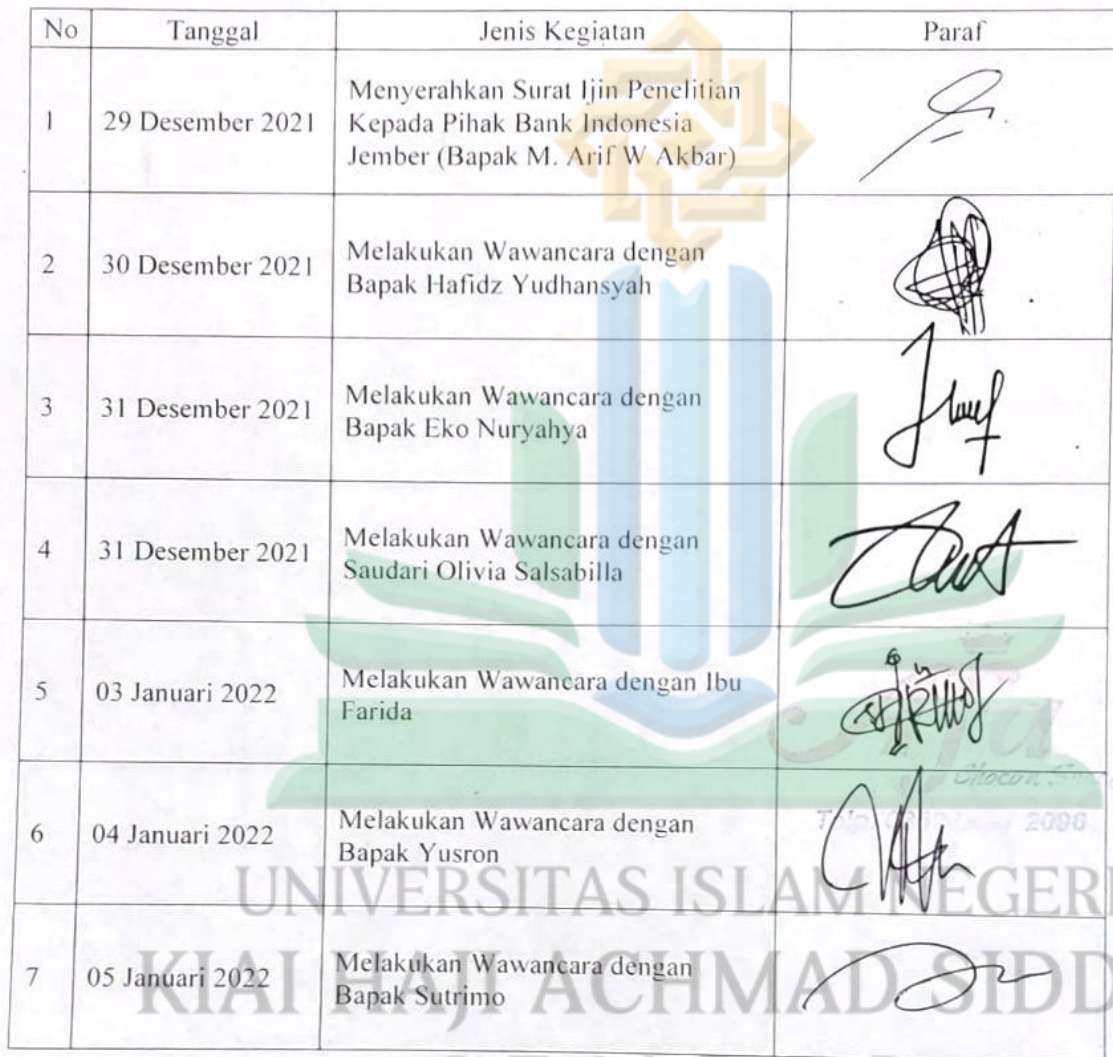 No Tanggal Jenis Kegiatan Paraf
Menyerahkan Surat Ijin Penelitian
1 29 Desember 2021 Kepada Pihak Bank Indonesia
Jember (Bapak M. Arif W Akbar)
2 30 Desember 2021 Melakukan Wawancara dengan
Bapak Hafidz Yudhansyah
3 31 Desember 2021 Melakukan Wawancara dengan
Bapak Eko Nuryahya
4 31 Desember 2021 Melakukan Wawancara dengan
Saudari Olivia Salsabilla
5 03 Januari 2022 Melakukan Wawancara dengan Ibu
Farida
6 04 Januari 2022 Melakukan Wawancara dengan
Bapak Yusron
2096
UNIVERSITAS ISLAM NEGERI
7 05 Januari 2022 Melakukan Wawancara dengan
Bapak Sutrimo
KIAI HAJI ACHMAD SIDD